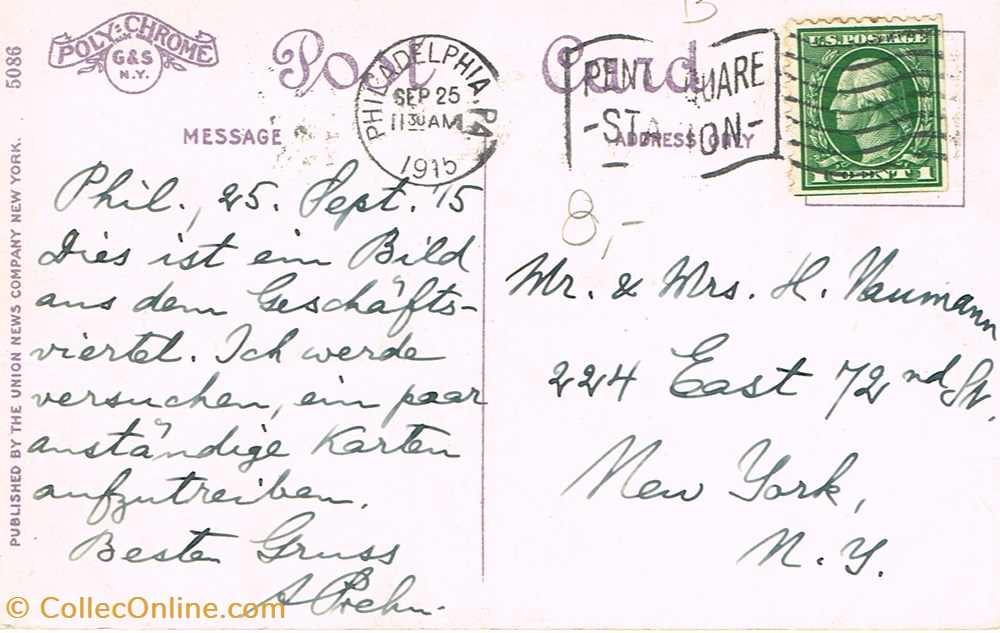 POLY-CHROME
G&S
N.Y.
5086
PUBLISHED BY THE UNION NEWS COMPANY NEW YORK.
Post Card
B
PHILADELPHIA, PA.
SEP 25
11 30 AM
1915
PENN SQUARE
-STATION-
U.S. POSTAGE
1 CENT 1
MESSAGE
ADDRESS ONLY
8,-
Phil., 25. Sept. '15
Dies ist ein Bild
aus dem Geschäfts-
viertel. Ich werde
versuchen, ein paar
anständige Karten
aufzutreiben.
Besten Gruss
Mr. & Mrs. H. Naumann
224 East 72nd St.
New York,
N. Y.
© CollecOnline.com